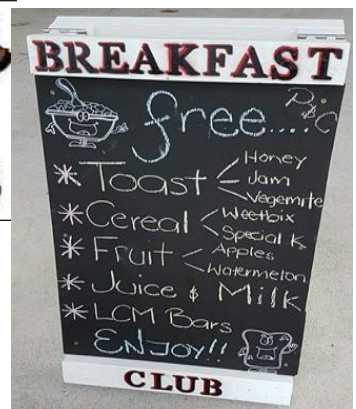 BREAKFAST
free.... P&C
* Toast < Honey
Jam
Vegemite
* Cereal < Weetbix
Special Ks
* Fruit < Apples
Watermelon
* Juice & Milk
* LCM Bars
ENJOY!!
CLUB